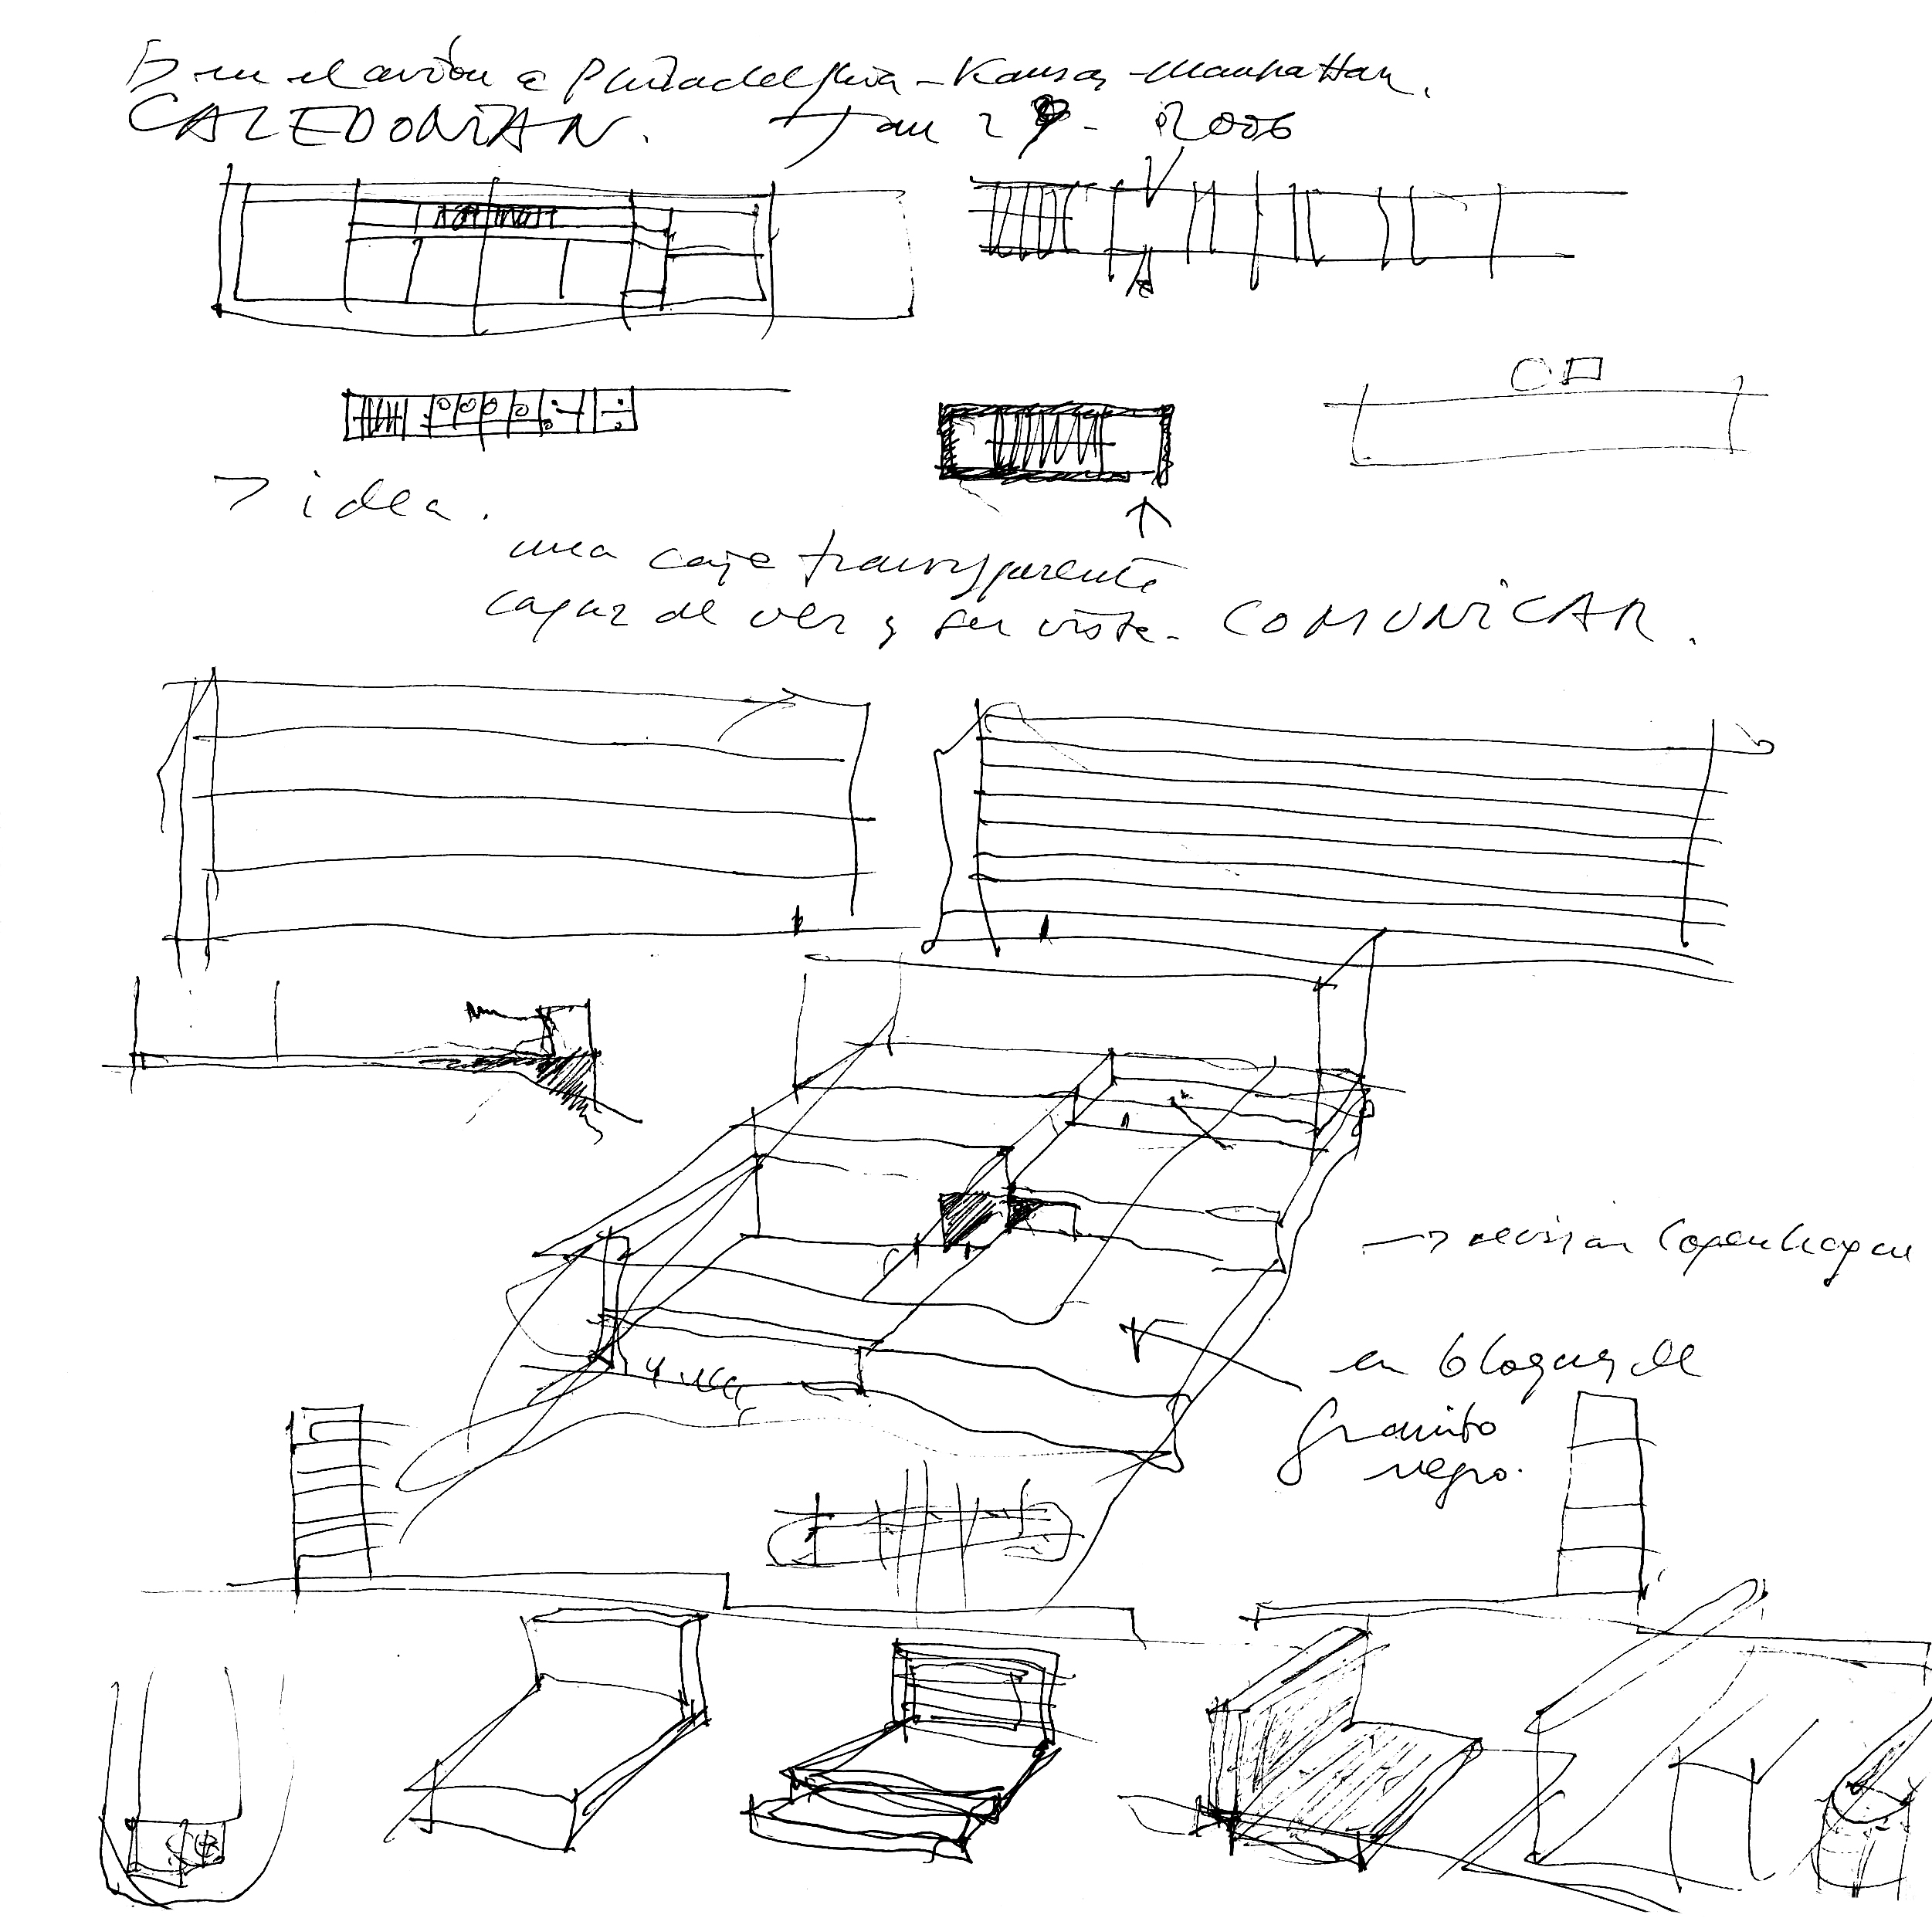 en el avión a Philadelphia - Kansas - Manhattan.
CALEDONIAN. Jan 29 - 2006
→ idea.
una caja transparente
capaz de ver y ser vista - COMUNICAR.
→ revisar Copenhagen
en bloques de
granito
negro.